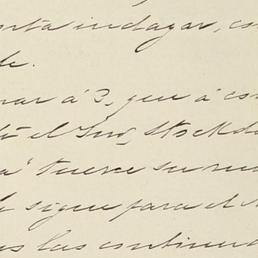 nta indagar, co
de.
nar á 3, que á con
tó el Ing. Stockda
a" tuerce su ru
sigue para el
as las continua